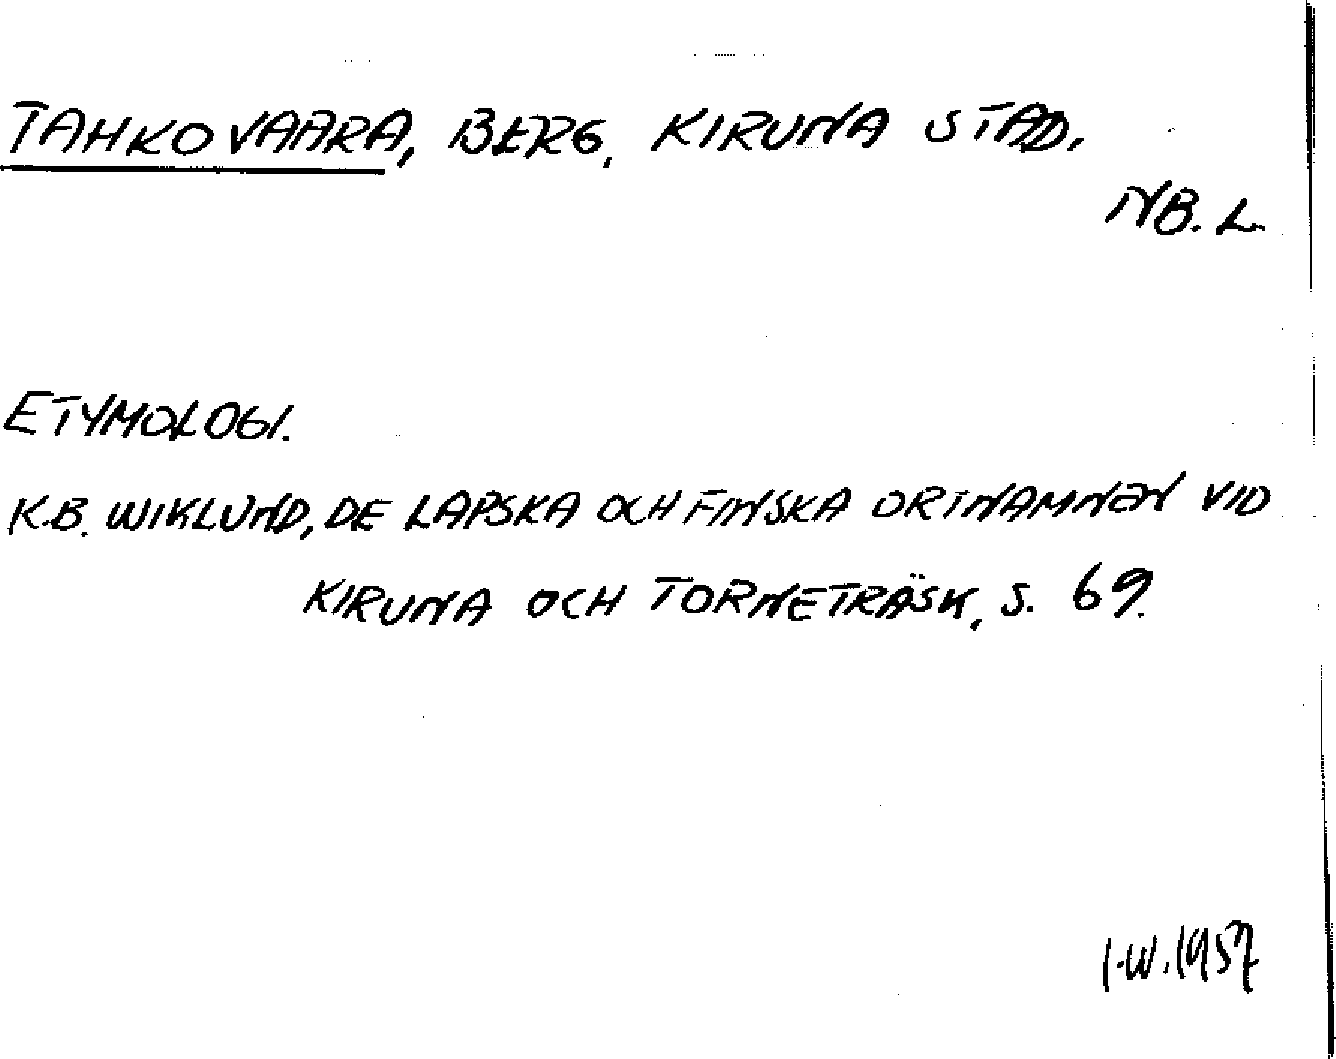 TAHKOVAARA, BERG, KIRUNA STAD.
NB. L.
ETYMOLOGI.
K.B. WIKLUND, DE LAPSKA OCH FINSKA ORTNAMNEN VID
KIRUNA OCH TORNETRÄSK, S. 69.
I.W. 1957